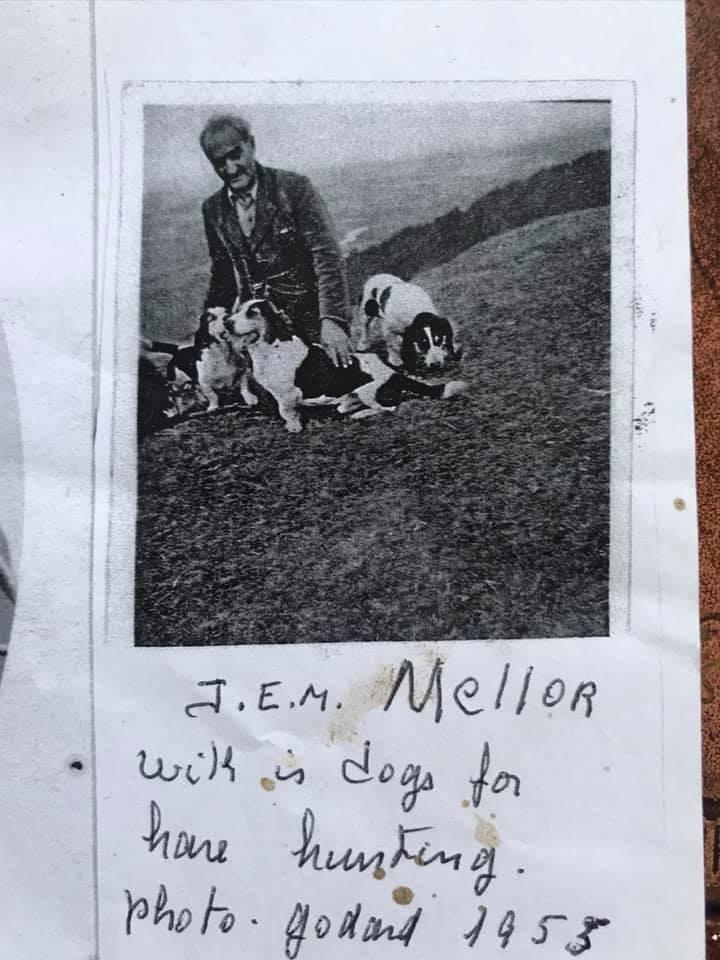 J.E.M. Mellor
with is dogs for
hare hunting.
photo. godard 1953